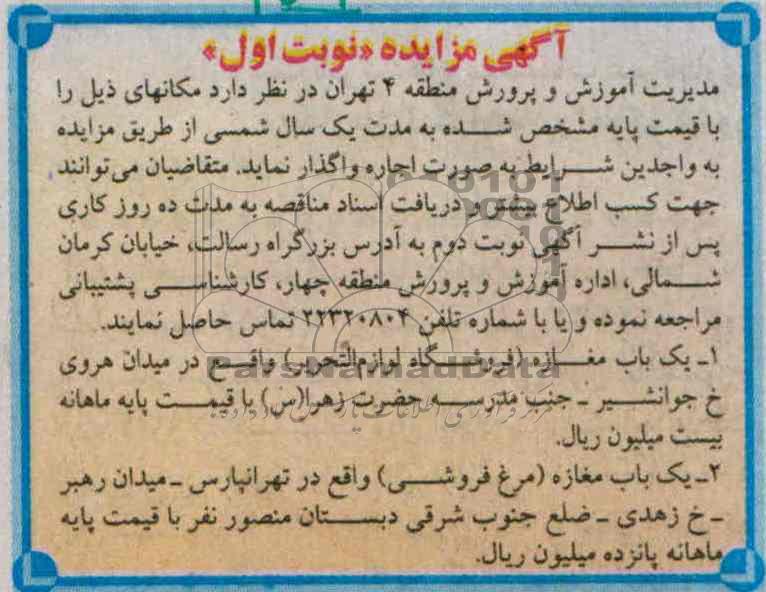 آگهی مزایده «نوبت اول»
مدیریت آموزش و پرورش منطقه ۴ تهران در نظر دارد مکانهای ذیل را
با قیمت پایه مشخص شده به مدت یک سال شمسی از طریق مزایده
به واجدین شرایط به صورت اجاره واگذار نماید. متقاضیان می‌توانند
جهت کسب اطلاع بیشتر و دریافت اسناد مناقصه به مدت ده روز کاری
پس از نشر آگهی نوبت دوم به آدرس بزرگراه رسالت، خیابان کرمان
شمالی، اداره آموزش و پرورش منطقه چهار، کارشناسی پشتیبانی
مراجعه نموده و یا با شماره تلفن ۲۲۳۲۰۸۰۴ تماس حاصل نمایند.
۱ـ یک باب مغازه (فروشگاه لوازم‌التحریر) واقع در میدان هروی
خ جوانشیر ـ جنب مدرسه حضرت زهرا(س) با قیمت پایه ماهانه
بیست میلیون ریال.
۲ـ یک باب مغازه (مرغ فروشی) واقع در تهرانپارس ـ میدان رهبر
ـ خ زهدی ـ ضلع جنوب شرقی دبستان منصور نفر با قیمت پایه
ماهانه پانزده میلیون ریال.
ParsNamadData